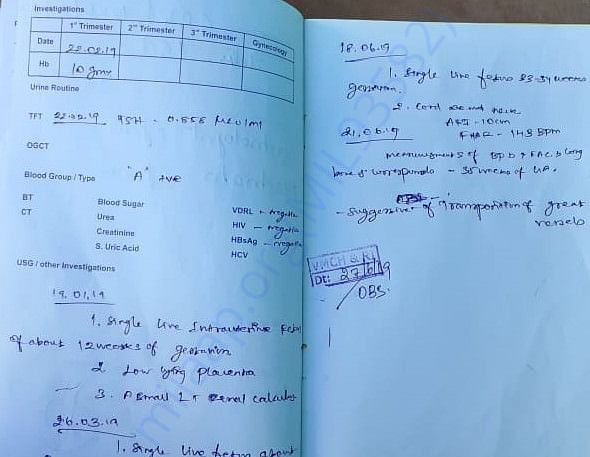 Investigations
1st Trimester 2nd Trimester 3rd Trimester Gynecology
Date 22.02.19
Hb 10 gm
Urine Routine
TFT 22.02.19 TSH - 0.558
OGCT
Blood Group / Type "A" +ve
BT Blood Sugar VDRL
CT Urea HIV
Creatinine HBsAg
S. Uric Acid HCV
USG / other Investigations
19.01.19
1. Single live Intrauterine
of about 12 weeks of gestation
2. Low lying placenta
3. A small Lt renal calculus
26.03.19
1. Single live about
18.06.19
1. Single live fetus 33-34 weeks
gestation.
2. Cord around neck
AFI - 10cm
21.06.19 FHR - 143 Bpm
measurements of BPD & FAC & long
bone
- Suggestive of Transposition of great
vessels
VMCH & RI
Dt: 27/6/19
OBS.